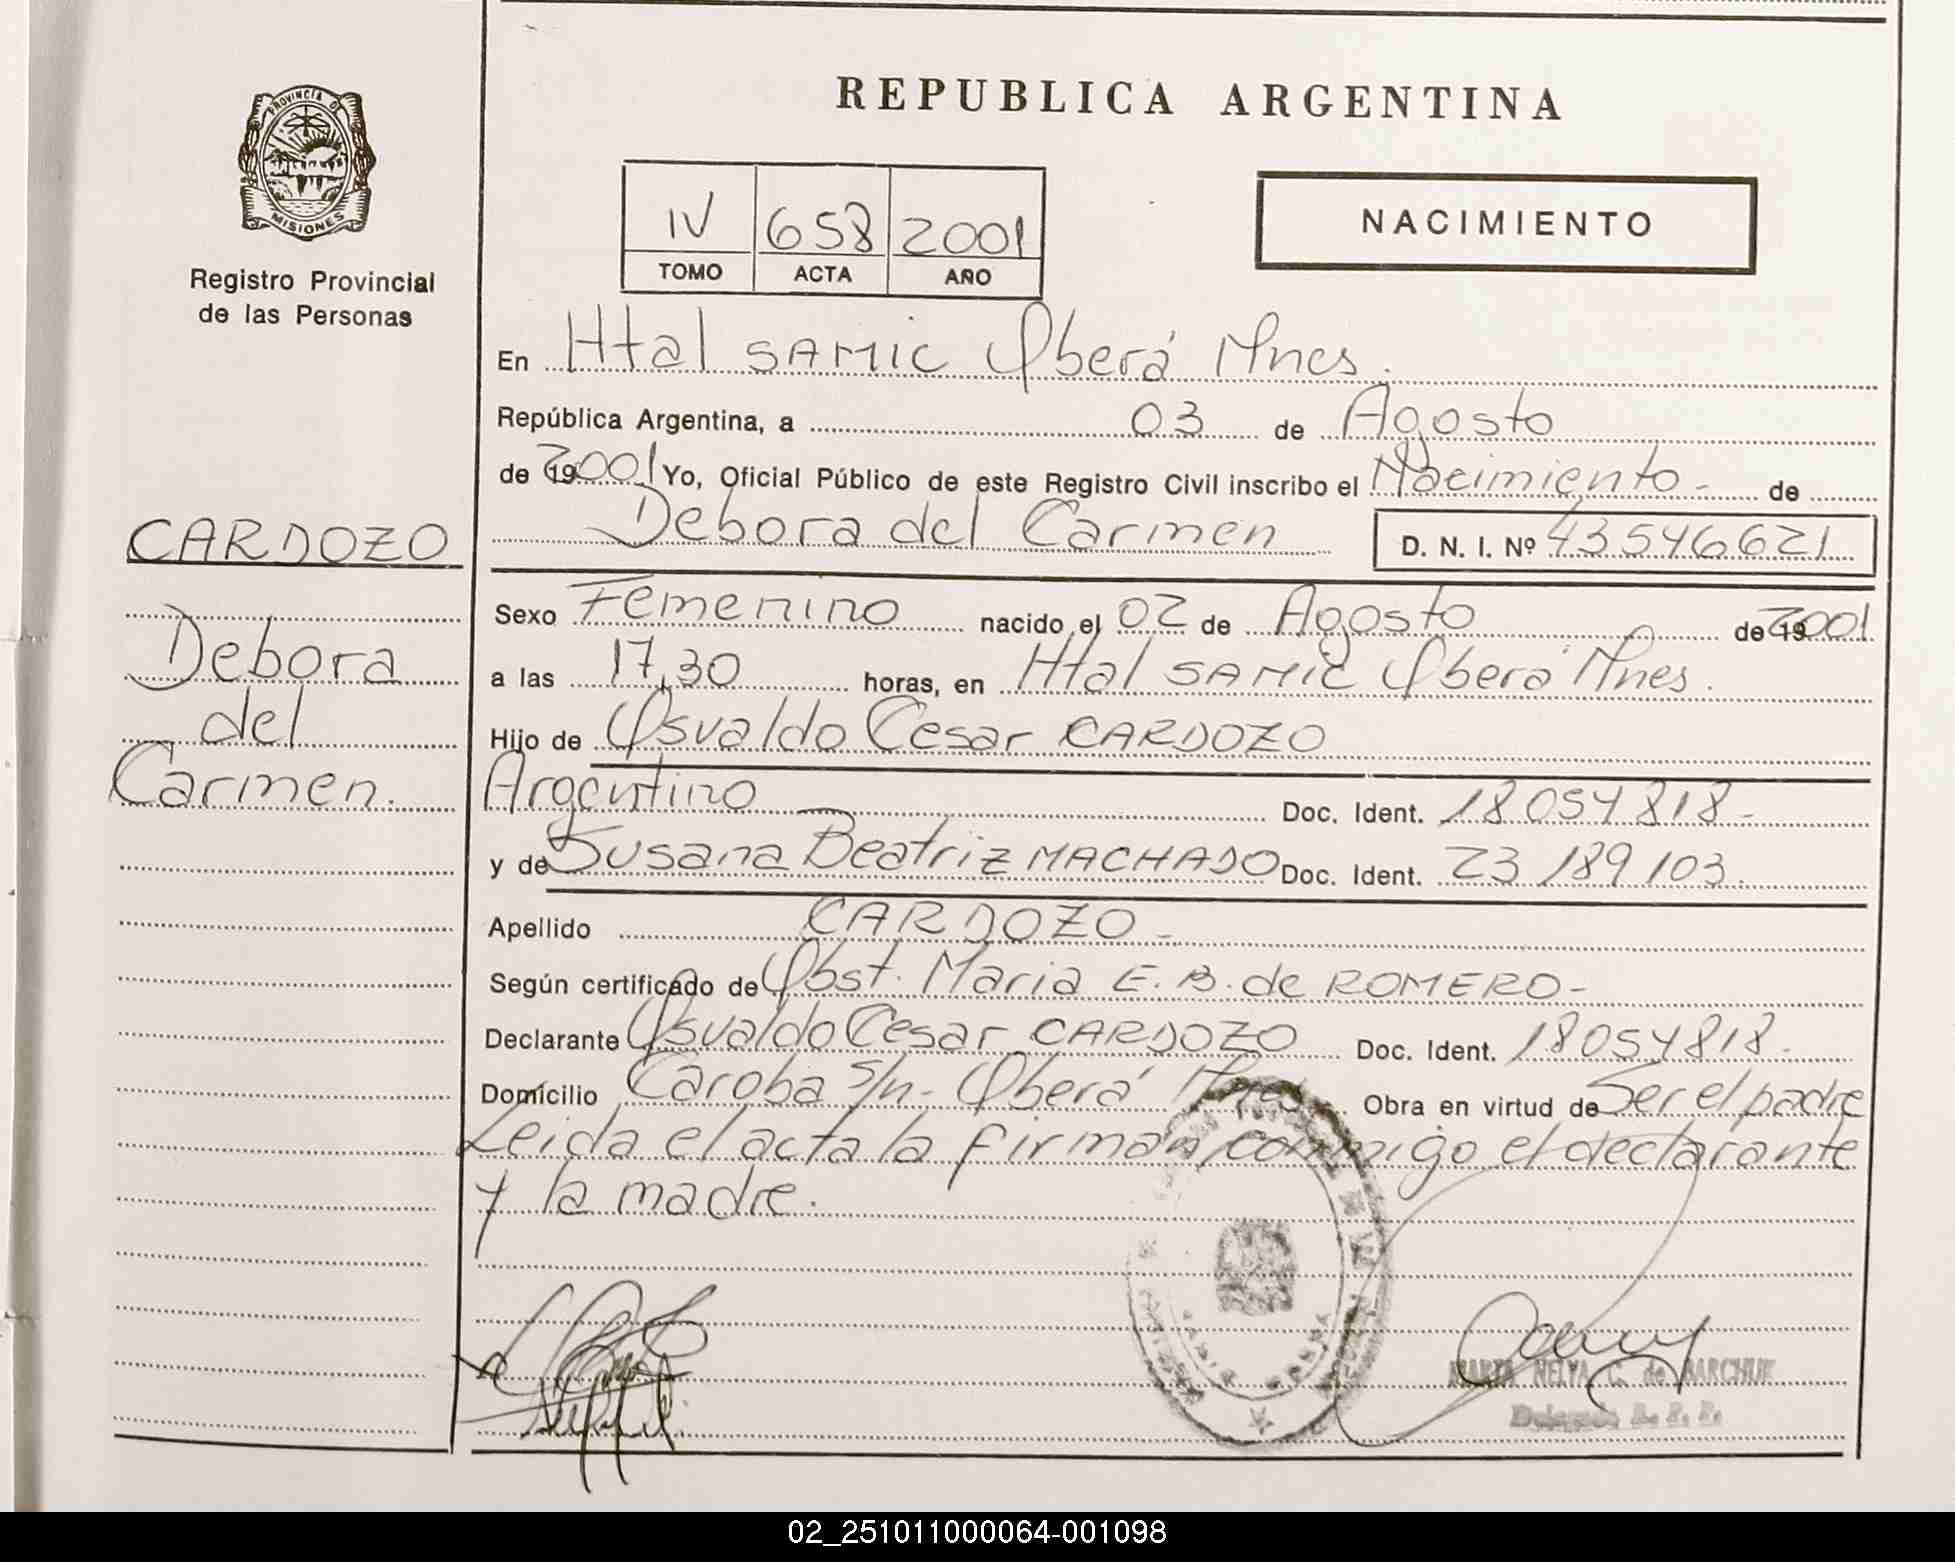 REPUBLICA ARGENTINA
PROVINCIA DE
MISIONES
Registro Provincial
de las Personas
IV 658 2001
TOMO ACTA AÑO
NACIMIENTO
En Htal SAMIC Oberá Mnes.
República Argentina, a 03 de Agosto
de 2001 Yo, Oficial Público de este Registro Civil inscribo el Nacimiento - de
Debora del Carmen D. N. I. Nº 43546621
CARDOZO
Debora
del
Carmen.
Sexo Femenino nacido el 02 de Agosto de 2001
a las 17,30 horas, en Htal SAMIC Oberá Mnes.
Hijo de Osvaldo Cesar CARDOZO
Argentino Doc. Ident. 18054818-
y de Susana Beatriz MACHADO Doc. Ident. 23189103.
Apellido CARDOZO -
Según certificado de Obst. Maria E. B. de ROMERO-
Declarante Osvaldo Cesar CARDOZO Doc. Ident. 18054818.
Domicilio Caroba s/n- Oberá Mnes Obra en virtud de Ser el padre
Leida el acta la firman conmigo el declarante
y la madre.
MARTA NELYA C. de BARCHUK
Delegada R. P. P.
02_251011000064-001098